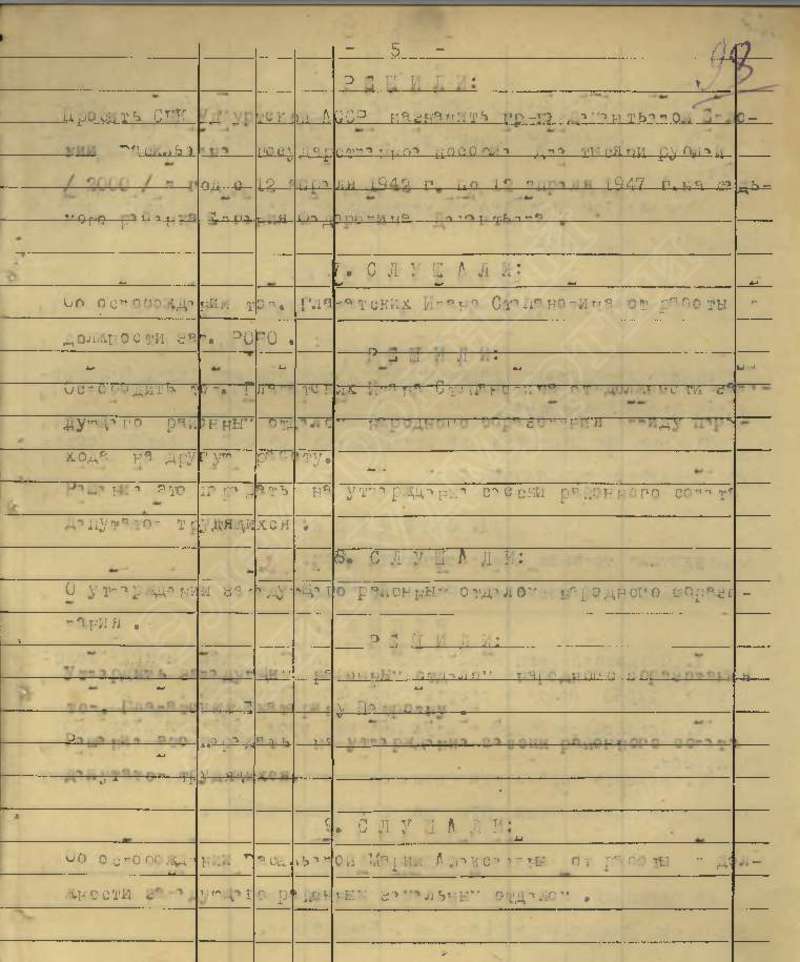 - 5 -
93
РЕШИЛИ:
Просить СНК Удмуртской АССР назначить гр-ке
государственное пособие две тысячи рублей
/2000/ в год с 12 апреля 1942 г. по 12 апреля 1947 г. на седь-
мого ребенка
7. СЛУШАЛИ:
Об освобождении тов. Главатских Ивана Степановича от работы в
должности зав. РОНО.
РЕШИЛИ:
Освободить тов. Главатских Ивана Степановича от должности заве-
дующего районным отделом народного образования ввиду пере-
хода на другую работу.
Решение это передать на утверждение сессии районного совета
депутатов трудящихся.
8. СЛУШАЛИ:
О утверждении заведующего районным отделом народного образо-
вания.
РЕШИЛИ:
Утвердить заведующим районным отделом народного образования
тов. Главатских Екатерину Петровну.
Решение это передать на утверждение сессии районного совета
депутатов трудящихся.
9. СЛУШАЛИ:
Об освобождении Васильевой Марии Алексеевны от работы в дол-
жности заведующего районным земельным отделом.